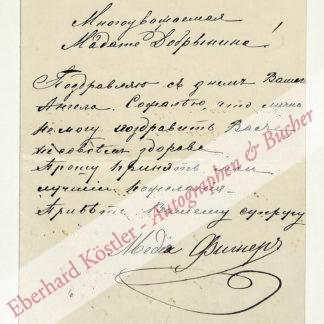 Многоуважаемая
Мадате Добрынина!
Поздравляю съ днемъ Вашего
Ангела. Сожалѣю, что лично
не могу поздравить Васъ
не совсѣмъ здорова
Прошу принять мои
лучшия пожелания.
Привѣтъ Вашему супругу
Медея Фигнеръ
Eberhard Köstler - Autographen & Bücher